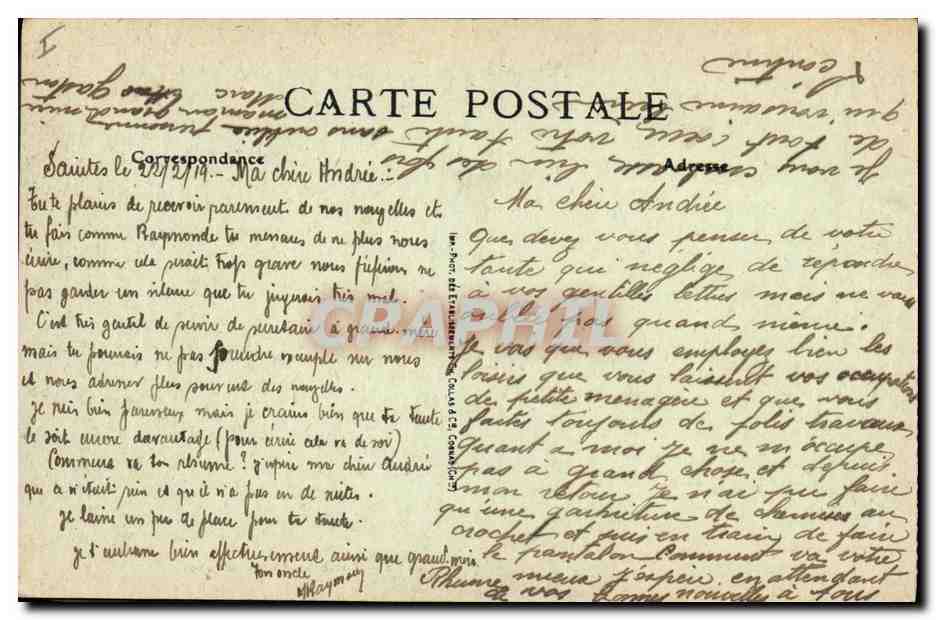 I
CARTE POSTALE
Correspondance
Adresse
Saintes le 22/2/19. - Ma chère Andrée. -
Tu te plains de recevoir rarement de nos nouvelles et
tu fais comme Raymonde tu menaces de ne plus nous
écrire, comme cela serait trop grave nous ne
pas garder un silence que tu jugerais très mal.
C'est très gentil de servir de secrétaire à grand-mère
mais tu pourrais ne pas prendre exemple sur nous
et nous adresser plus souvent des nouvelles.
Je suis bien paresseux mais je crains bien que ta tante
le soit encore davantage (pour écrire cela va de soi)
Comment va ton rhume? j'espère ma chère Andrée
que ce n'était rien et qu'il n'a pas eu de suites.
Je laisse un peu de place pour ta tante.
Je t'embrasse bien affectueusement ainsi que grand-mère.
Ton oncle
Raymond
IMP.-PHOT. DES ETABLISSEMENTS COLLAS & Cie, COGNAC (Chte)
Ma chère Andrée
Que devez vous penser de votre
tante qui néglige de répondre
à vos gentilles lettres mais ne vous
pas quand même.
Je vois que vous employez bien les
loisirs que vous laissent vos occupations
de petite ménagère et que vous
faites toujours de jolis travaux
Quant à moi je ne m'occupe
pas à grand chose et depuis
mon retour je n'ai pu faire
qu'une garniture de chemises au
crochet et suis en train de faire
le pantalon Comment va votre
Rhume mieux j'espère en attendant
de vos bonnes nouvelles à tous
Je vous embrasse bien des fois
de tout cœur votre tante sans oublier
qui vous aime bien maman grand-mère
Marc Gaston